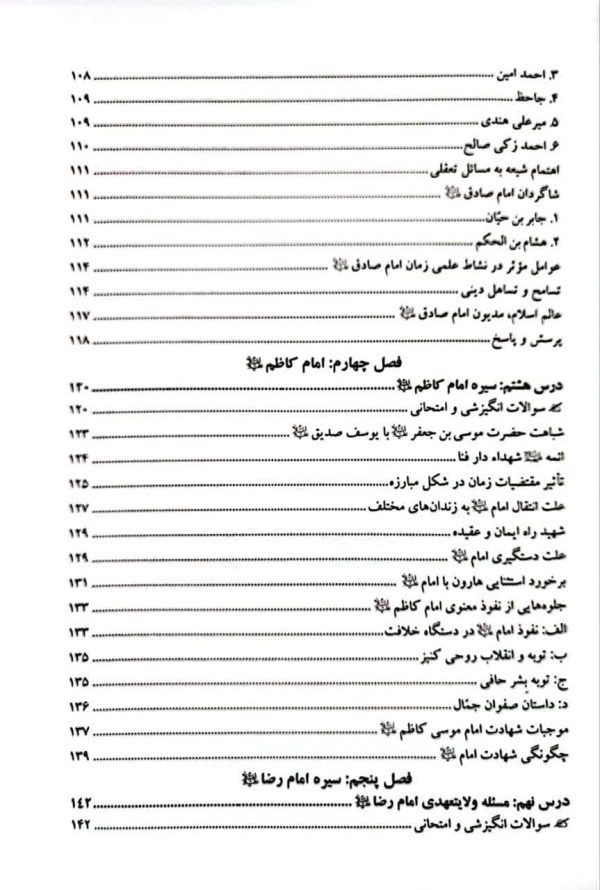 ۳. احمد امین ........ ۱۰۸
۴. جاحظ ........ ۱۰۹
۵. میرعلی هندی ........ ۱۰۹
۶. احمد زکی صالح ........ ۱۱۰
اهتمام شیعه به مسائل تعقلی ........ ۱۱۱
شاگردان امام صادق ........ ۱۱۱
۱. جابر بن حیّان ........ ۱۱۱
۲. هشام بن الحکم ........ ۱۱۲
عوامل مؤثر در نشاط علمی زمان امام صادق ........ ۱۱۴
تسامح و تساهل دینی ........ ۱۱۴
عالم اسلام، مدیون امام صادق ........ ۱۱۷
پرسش و پاسخ ........ ۱۱۸
فصل چهارم: امام کاظم
درس هشتم: سیره امام کاظم ........ ۱۲۰
سوالات انگیزشی و امتحانی ........ ۱۲۰
شباهت حضرت موسی بن جعفر با یوسف صدیق ........ ۱۲۳
ائمه شهداء دار فنا ........ ۱۲۴
تأثیر مقتضیات زمان در شکل مبارزه ........ ۱۲۵
علت انتقال امام به زندان‌های مختلف ........ ۱۲۷
شهید راه ایمان و عقیده ........ ۱۲۹
علت دستگیری امام ........ ۱۲۹
برخورد استثنایی هارون با امام ........ ۱۳۱
جلوه‌هایی از نفوذ معنوی امام کاظم ........ ۱۳۳
الف: نفوذ امام در دستگاه خلافت ........ ۱۳۳
ب: توبه و انقلاب روحی کنیز ........ ۱۳۵
ج: توبه بِشر حافی ........ ۱۳۵
د: داستان صفوان جمّال ........ ۱۳۶
موجبات شهادت امام موسی کاظم ........ ۱۳۷
چگونگی شهادت امام ........ ۱۳۹
فصل پنجم: سیره امام رضا
درس نهم: مسئله ولایتعهدی امام رضا ........ ۱۴۲
سوالات انگیزشی و امتحانی ........ ۱۴۲